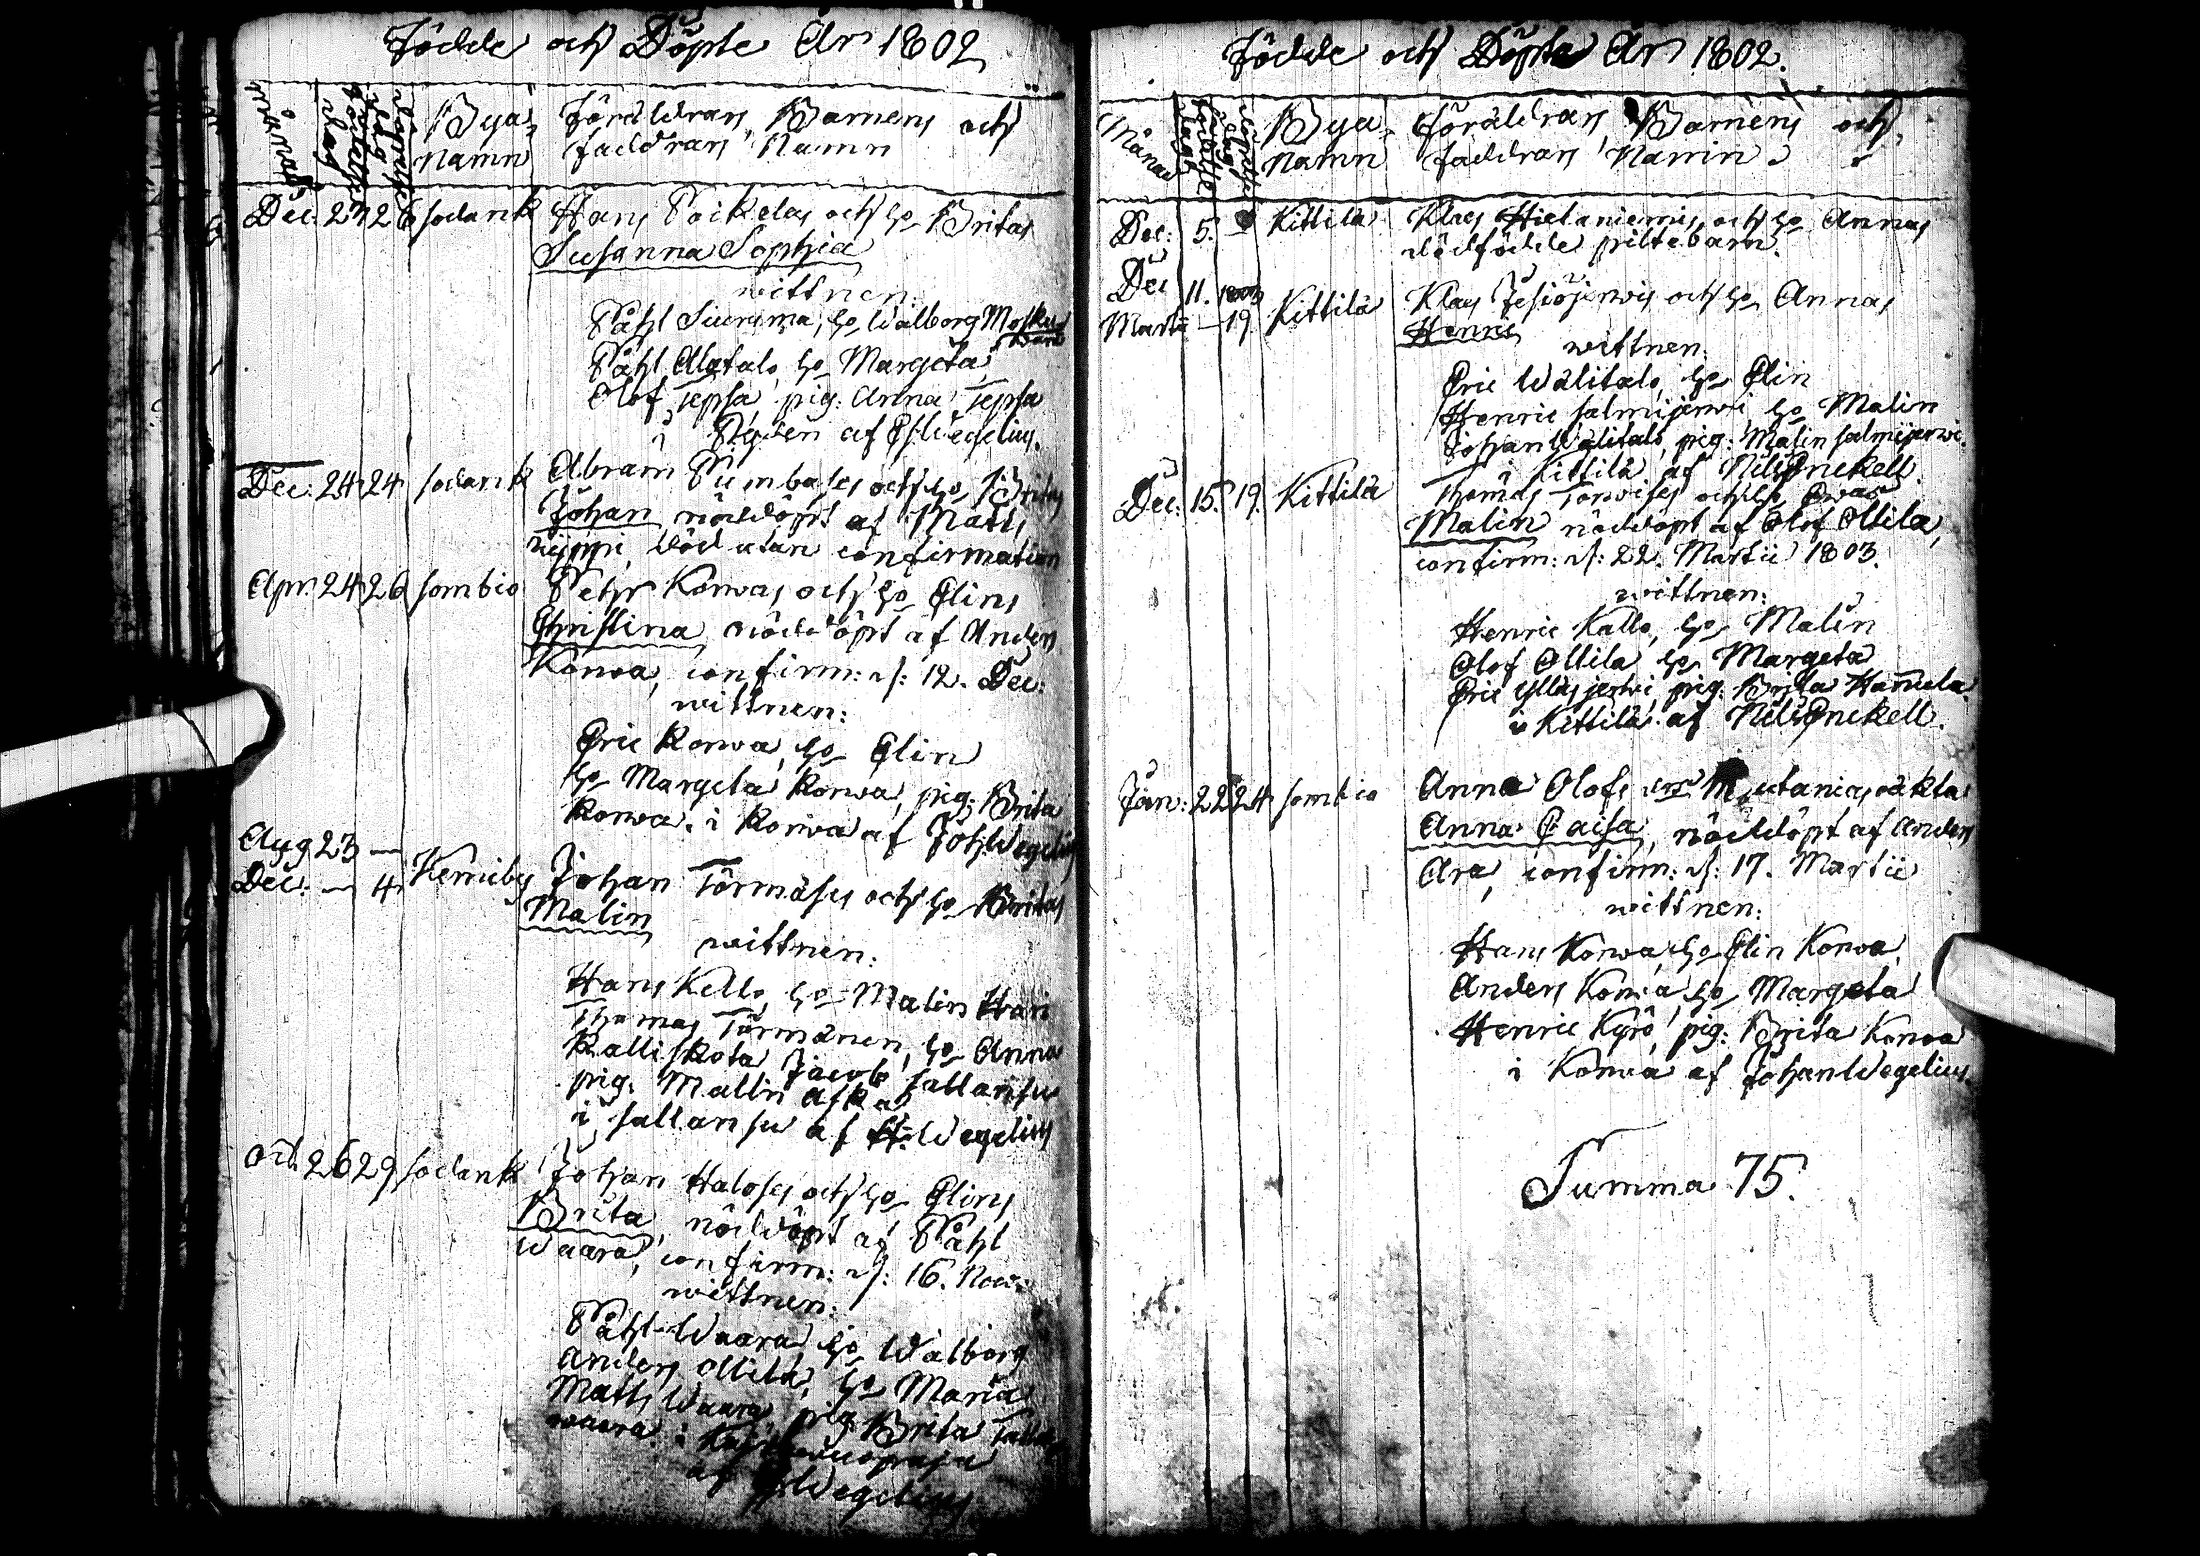 Födde och Döpte År 1802
Månad
födelse dag
döpelse dag
Bya namn
Föräldrars, Barnens och
faddrars Namn
Dec. 23 26 sodank Hans Poikelas och ho Britas
Susanna Sophia
wittnen:
Påhl Siuruma, ho Walborg Moskuwara
Påhl Alatalo, ho Margeta
Olof Tepsa, pig: Anna Tepsa
i Ryden af Es Wegelius.
Dec: 24 24 sodank Abram Pumbases och ho Britas
Johan nöddöpt af Matts
död utan confirmation
Apr. 24 26 sombio Petr Korwas och ho Elins
Christina, nöddöpt af Anders
Korwa, confirm: d: 12. Dec:
wittnen:
Eric Korwa, ho Elin
ho Margeta Korwa, pig: Brita
Korwa. i Korwa af Joh Wegelius
Aug 23 —
Dec: — 4 Kemiby Johan Törmäses och ho Britas
Malin
wittnen:
Hans Kello, ho Malin Hari
Thomas Törmänen, ho Anna
Kalliskota Jacob sallansu
pig. Malin Aska
i sallansu af Wegelius
Oct. 26 29 sodank Johan Haloses och ho Elins
Brita, nöddöpt af Påhl
Waara, confirm: d: 16. Now:
wittnen:
Påhl Waara ho Walborg
Anders Ollila, ho Maria
Matts Waara, pig Brita
waara i
af Wegelius
Födde och Döpta År 1802.
Månad
födelse dag
döpelse dag
Bya namn
Föräldrars, Barnens och
faddrars Namn
Dec: 5. — Kittilä Klas Hietaniemis och ho Annas
dödfödde piltebarn.
Dec 11. 1803
Martii — 19. Kittilä Klas Jesiöjerwis och ho Annas
Henric
wittnen:
Eric Wälitalo, ho Elin
Henric salmijerwi ho Malin
Johan Wälitalo, pig: Malin salmijerwi.
i Kittilä af Nils Enckell.
Dec: 15. 19. Kittilä Thomas Torwises och ho Ewas
Malin nöddöpt af Olof Ollila,
confirm: d: 22. Martii 1803.
wittnen:
Henric Kallo, ho Malin
Olof Ollila ho Margeta
Eric Ylläsjerwi pig: Brita Hannula
i Kittilä af Nils Enckell.
Jan: 22 24 sombio Anna Olofs Mutanias oäkta
Anna Caisa, nöddöpt af Anders
Ara, confirm: d: 17. Martii
wittnen:
Hans Korwa, ho Elin Korwa.
Anders Korwa, ho Margeta
Henric Kyrö, pig: Brita Korwa
i Korwa af Johan Wegelius
Summa 75.